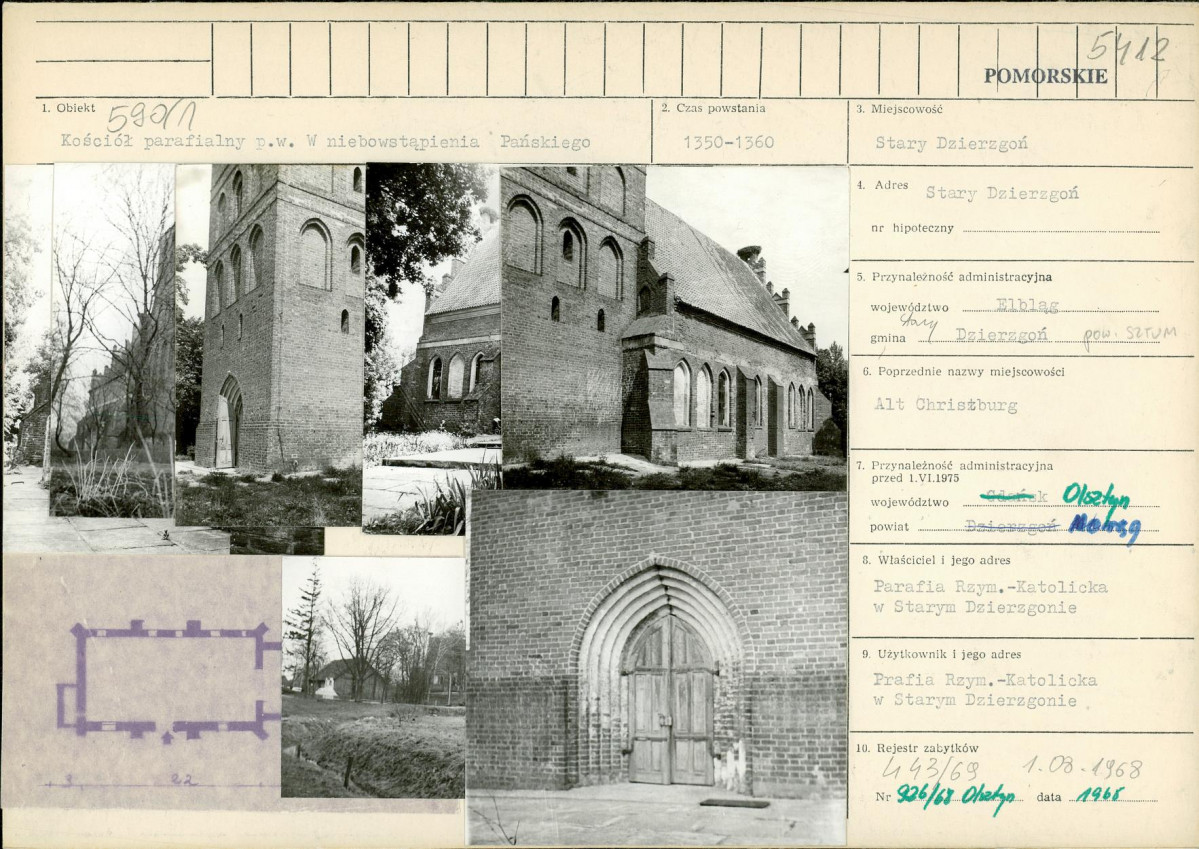 5412
POMORSKIE
1. Obiekt 590/1
Kościół parafialny p.w. W niebowstąpienia Pańskiego
2. Czas powstania
1350-1360
3. Miejscowość
Stary Dzierzgoń
4. Adres Stary Dzierzgoń
nr hipoteczny
5. Przynależność administracyjna
województwo Elbląg
Stary
gmina Dzierzgoń pow. SZTUM
6. Poprzednie nazwy miejscowości
Alt Christburg
7. Przynależność administracyjna
przed 1.VI.1975
województwo Gdańsk Olsztyn
powiat Dzierzgoń Morąg
8. Właściciel i jego adres
Parafia Rzym.-Katolicka
w Starym Dzierzgonie
9. Użytkownik i jego adres
Prafia Rzym.-Katolicka
w Starym Dzierzgonie
10. Rejestr zabytków
443/69 1.08.1968
Nr 926/68 Olsztyn data 1968
3 22